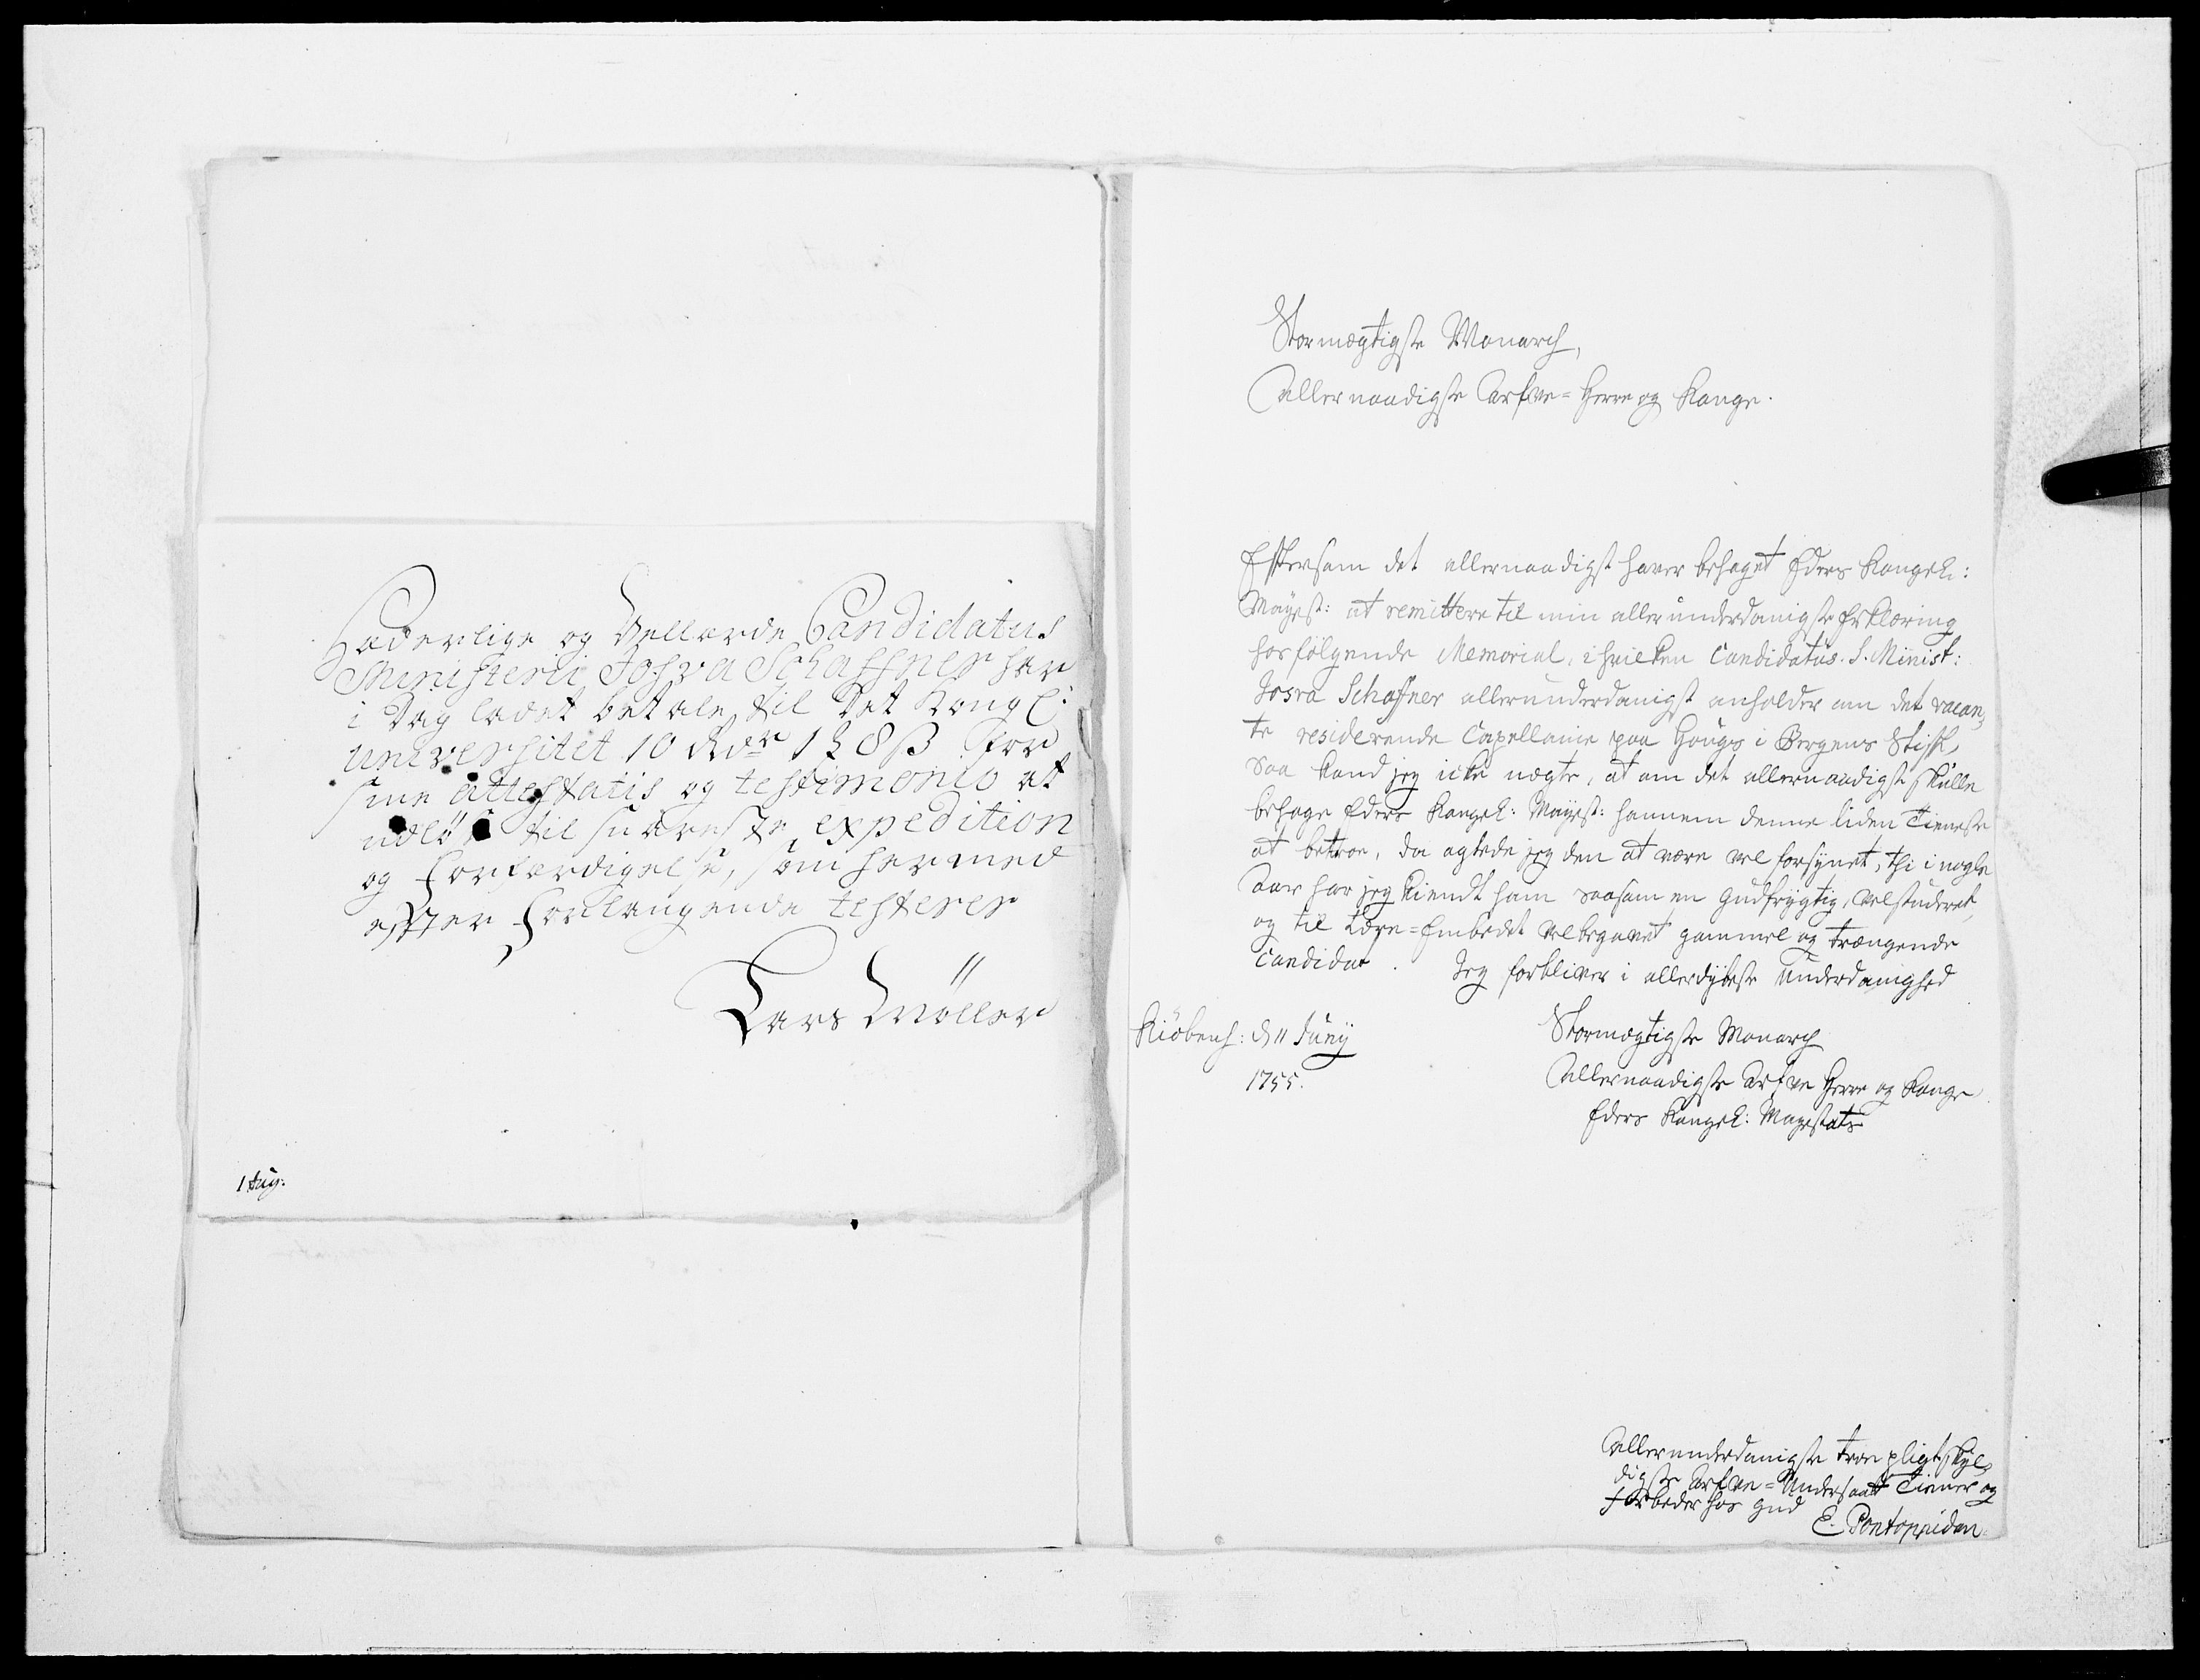 Hæderlige og Vellærde Candidatus
Ministerii Josva Schaffner har
i Dag ladet betale til Det Kongl:
Universitet 10 Rdr 1 ꝑ 8 ß for
sine attestatis og testimonio at
udlöse til snareste expedition
og forfærdigelse, som hermed
efter forlangende testerer
Lars Möller
1 Aug:
Stormægtigste Monarch,
Allernaadigste Arfve-Herre og Konge.
Eftersom det allernaadigst haver behaget Eders Kongel:
Mayest: at remittere til min allerunderdanigste Erklæring
hosfølgende Memorial, i hvilken Candidatus S. Minist:
Josva Schaffner allerunderdanigst anholder om det vacan-
te residerende Capellanie paa Hougs i Bergens Stift,
Saa kand jeg icke nægte, at om det allernaadigst skulle
behage Eders Kongel: Mayest: hannem denne liden Tieneste
at betroe, da agtede jeg den at være vel forsynet, thi i nogle
Aar har jeg kiendt ham saasom en gudfrygtig, velstuderet,
og til Lære-Embedet velbegavet gammel og trængende
Candidat. Jeg forbliver i allerdybeste Underdanighed
Kiöbenh: d 11 Juny
1755.
Stormægtigste Monarch
Allernaadigste Arfve Herre og Konge
Eders Kongel: Mayestets
Allerunderdanigste troe pligtskyl-
digste Arfve-Undersaatt Tiener og
Forbeder hos Gud
E. Pontoppidan